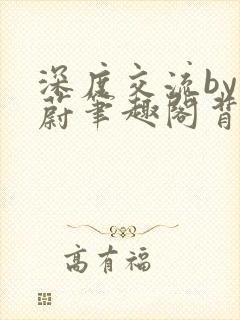 深度交流by
蔚笔趣阁背
高有福